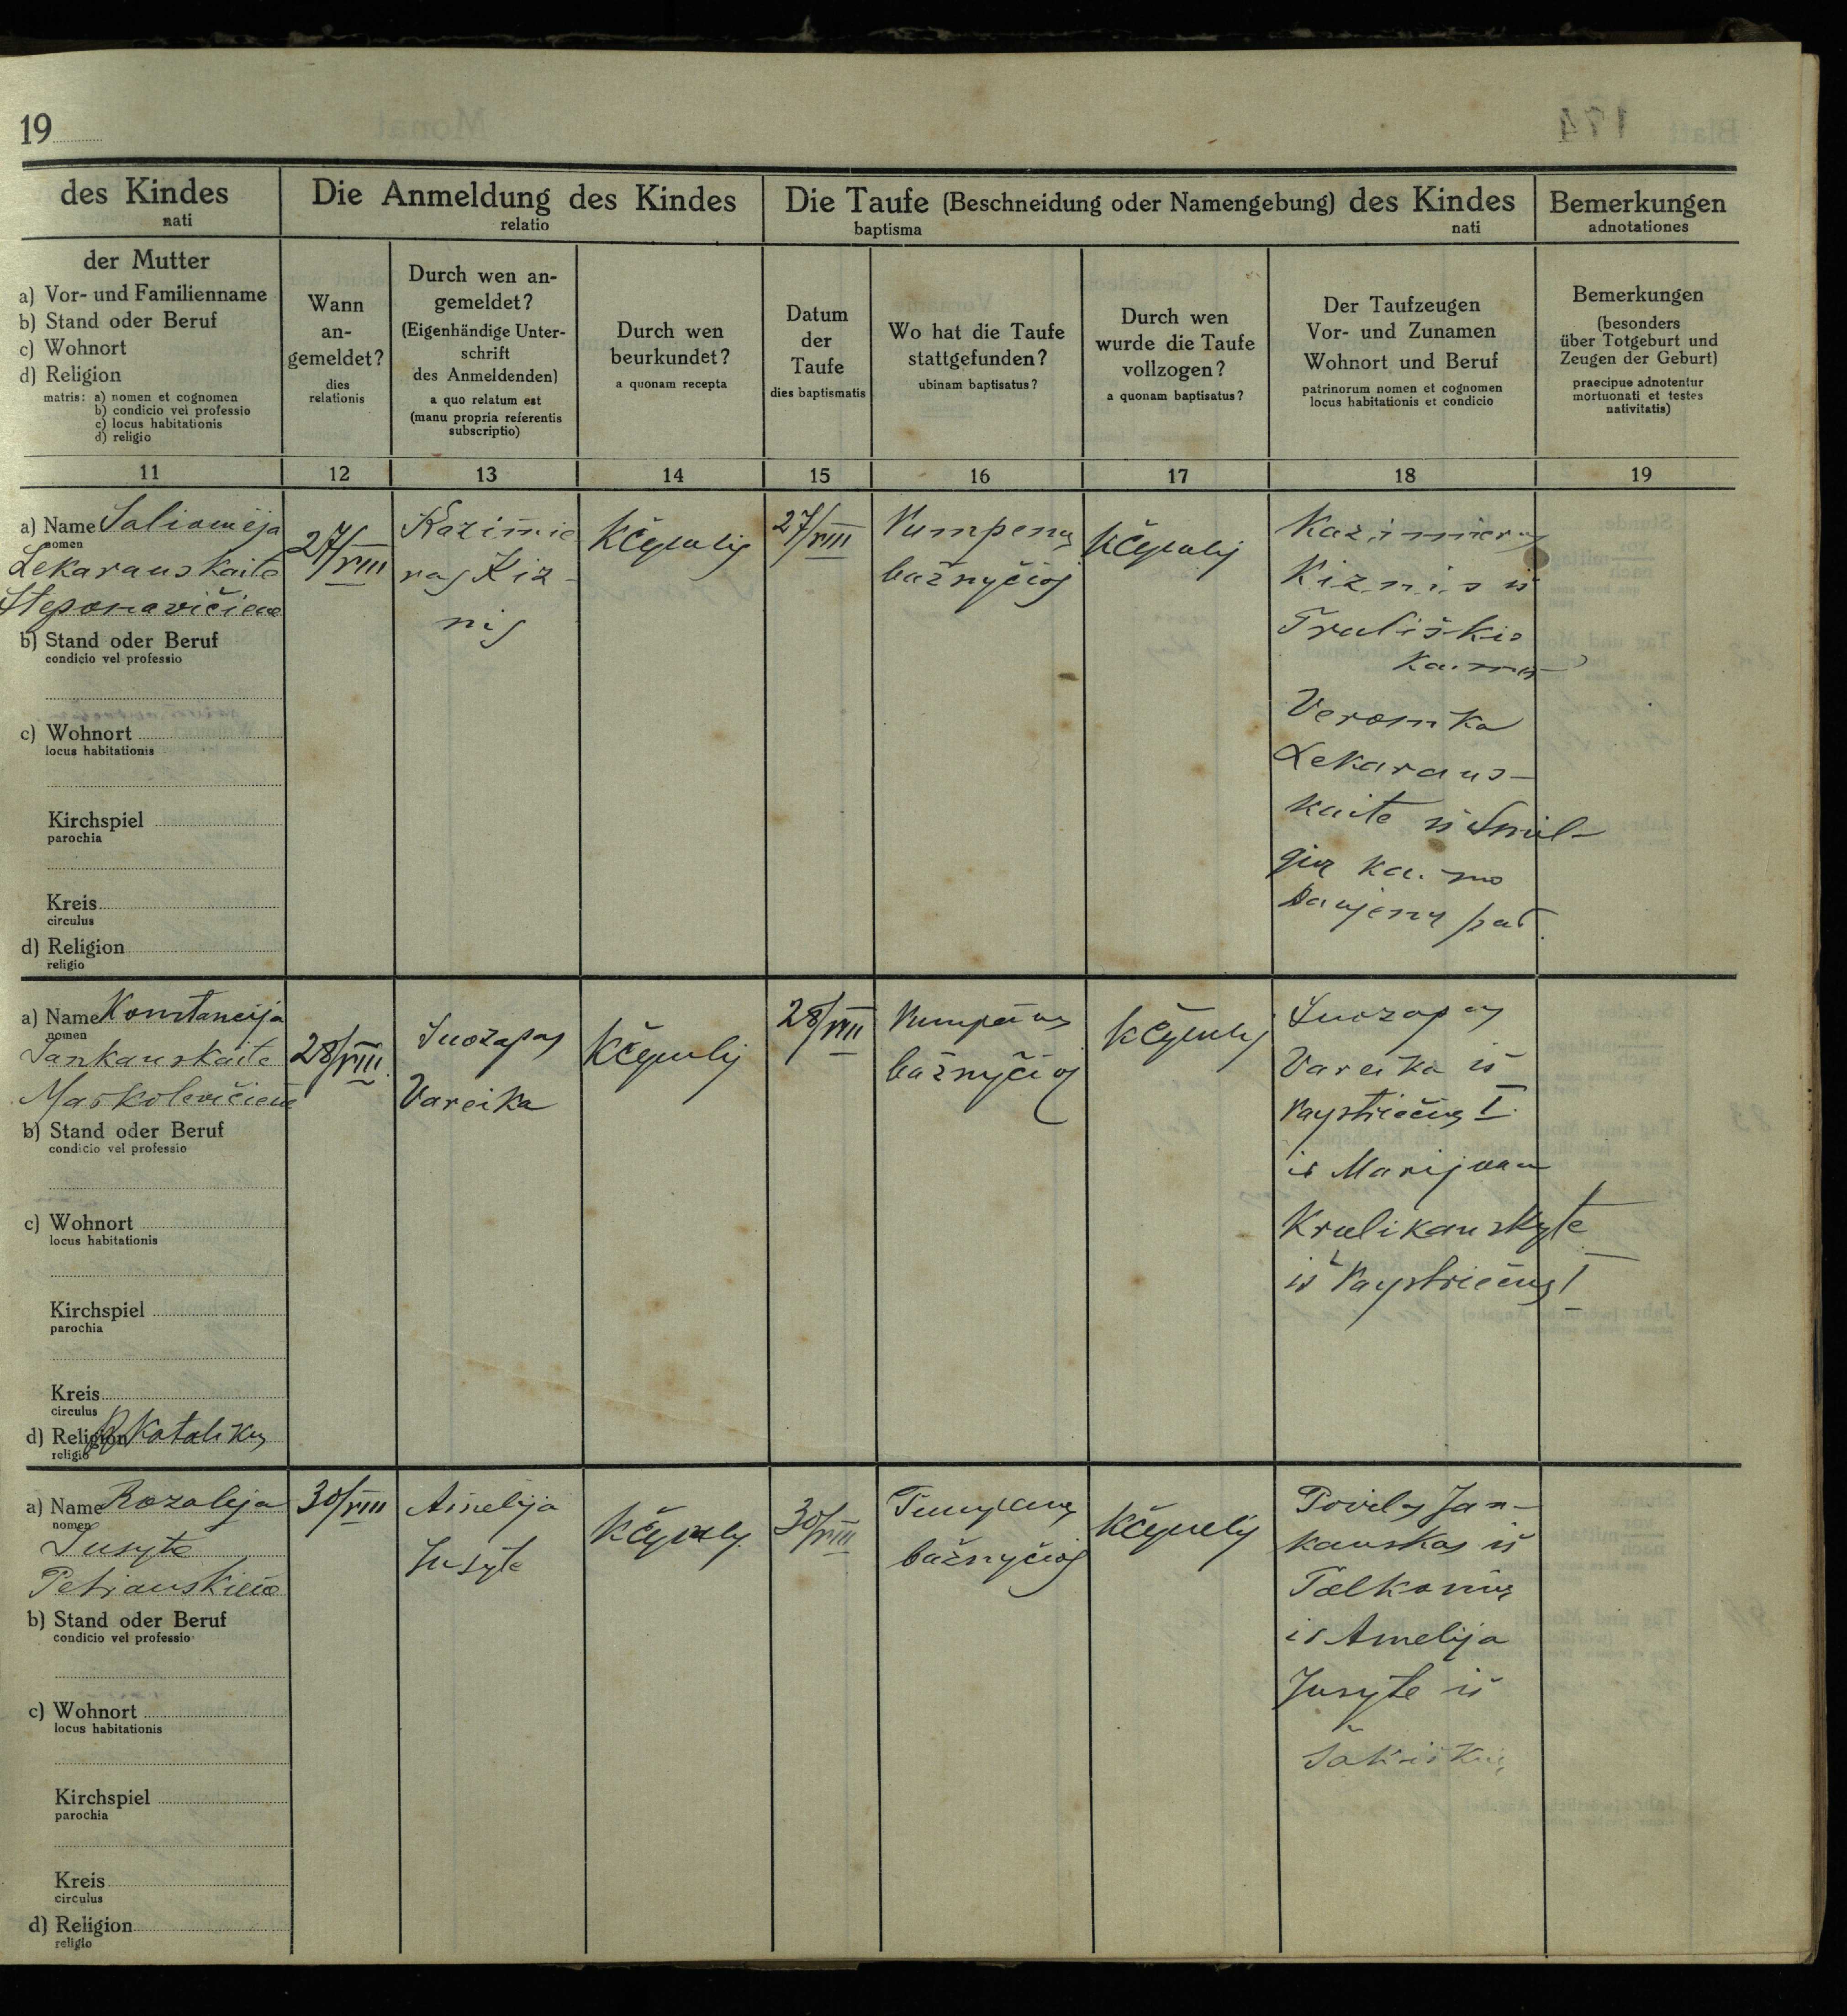 19
des Kindes
nati
Die Anmeldung des Kindes
relatio
Die Taufe (Beschneidung oder Namengebung) des Kindes
baptisma nati
Bemerkungen
adnotationes
der Mutter
a) Vor- und Familienname
b) Stand oder Beruf
c) Wohnort
d) Religion
matris: a) nomen et cognomen
b) condicio vel professio
c) locus habitationis
d) religio
Wann
an-
gemeldet?
dies
relationis
Durch wen an-
gemeldet?
(Eigenhändige Unter-
schrift
des Anmeldenden)
a quo relatum est
(manu propria referentis
subscriptio)
Durch wen
beurkundet?
a quonam recepta
Datum
der
Taufe
dies baptismatis
Wo hat die Taufe
stattgefunden?
ubinam baptisatus?
Durch wen
wurde die Taufe
vollzogen?
a quonam baptisatus?
Der Taufzeugen
Vor- und Zunamen
Wohnort und Beruf
patrinorum nomen et cognomen
locus habitationis et condicio
Bemerkungen
(besonders
über Totgeburt und
Zeugen der Geburt)
praecipue adnotentur
mortuonati et testes
nativitatis)
11 12 13 14 15 16 17 18 19
a) Name Saliomėja
nomen
Lekarauskaite
Steponavičiene
b) Stand oder Beruf
condicio vel professio
c) Wohnort
locus habitationis
Kirchspiel
parochia
Kreis
circulus
d) Religion
religio
27/VIII
Kazimie
ras Kiz-
nis
27/VIII
Pumpenų
bažnyčioj
Kazimieras
Kiznis iš
Truliškio
kaimo
Veronika
Lekaraus-
kaite iš Smil-
gių kaimo
Daujenų par.
a) Name Konstancija
nomen
Jankauskaite
Maskolevičiene
b) Stand oder Beruf
condicio vel professio
c) Wohnort
locus habitationis
Kirchspiel
parochia
Kreis
circulus
d) Religion R Katalikų
religio
28/VIII
Juozapas
Vareika
28/VIII
Pumpėnų
bažnyčioj
Juozapas
Vareika iš
I
ir Marijona
Krulikauskyte
iš I
a) Name Rozalija
nomen
Jusyte
Petrauskiene
b) Stand oder Beruf
condicio vel professio
c) Wohnort
locus habitationis
Kirchspiel
parochia
Kreis
circulus
d) Religion
religio
30/VIII
Amelija
Jusyte
30/VIII
Pumpenų
bažnyčioj
Povilas Jan-
kauskas iš
Talkonių
ir Amelija
Jusyte iš